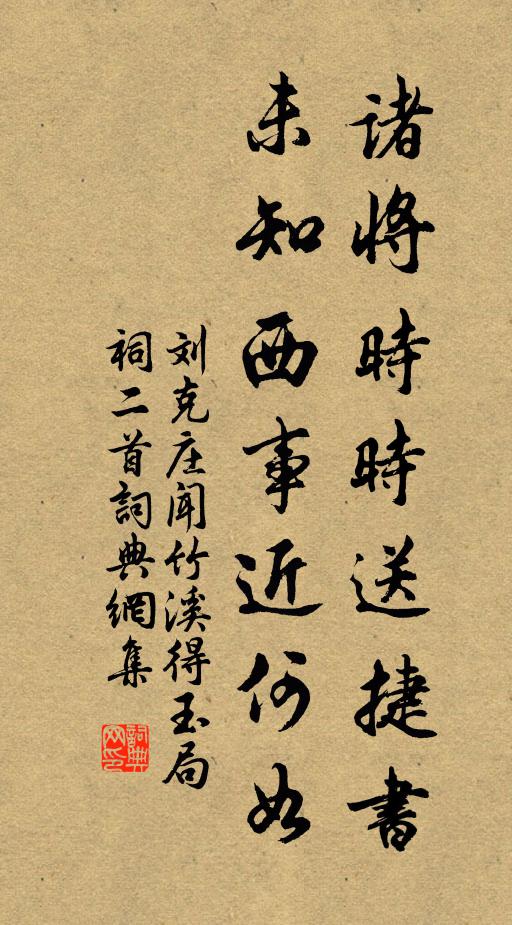 諸將時時送捷書
未知西事近何如
刘克庄闻竹溪得玉局
祠二首詞典網集
詞典
网印